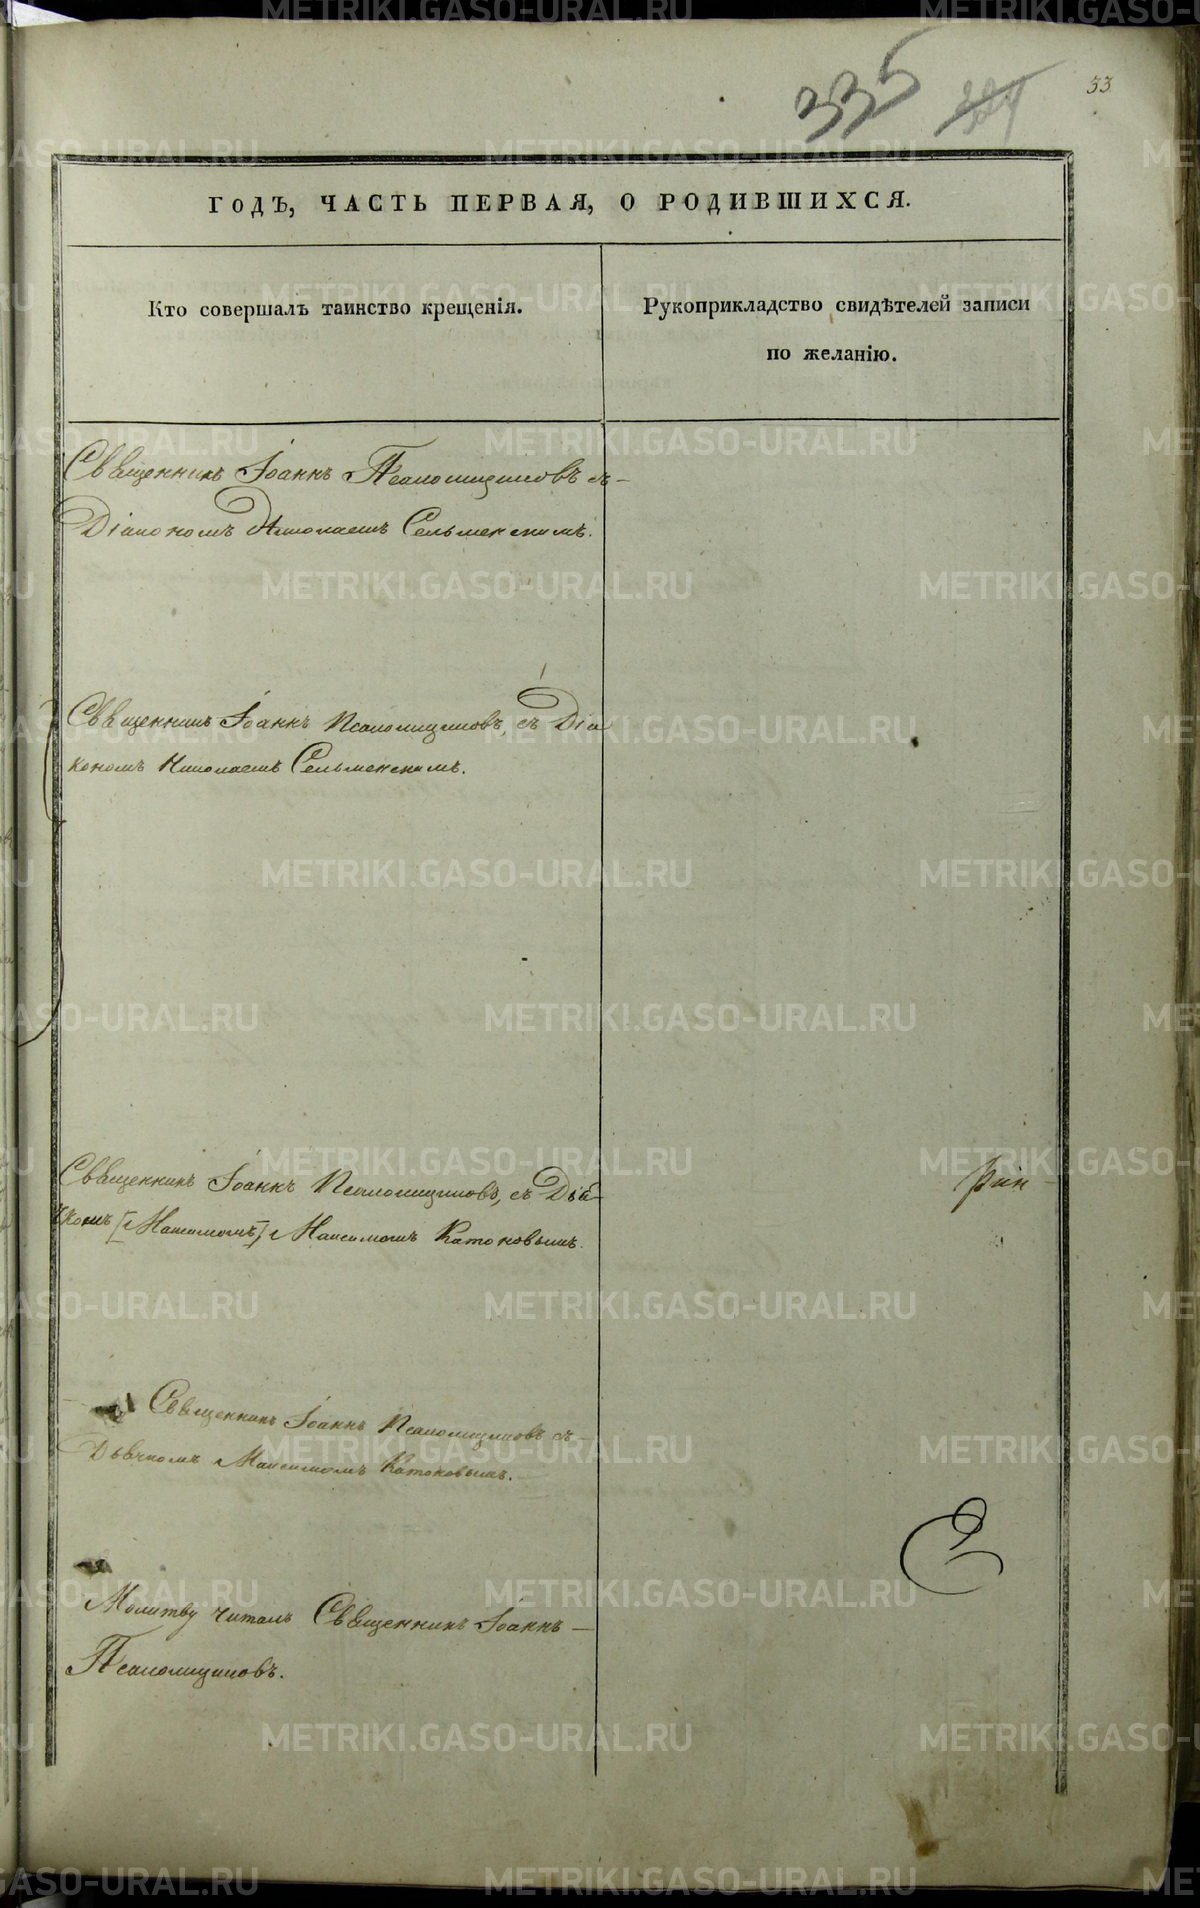 335 324 53
ГОДЪ, ЧАСТЬ ПЕРВАЯ, О РОДИВШИХСЯ.
Кто совершалъ таинство крещенія.
Рукоприкладство свидѣтелей записи
по желанію.
Священникъ Іоаннъ Псаломщиковъ съ
Діакономъ Николаемъ Сельменскимъ.
Священникъ Іоаннъ Псаломщиковъ, съ Діа
кономъ Николаемъ Сельменскимъ.
Священникъ Іоаннъ Псаломщиковъ, съ Дья-
[Максимомъ] Максимомъ Катоковымъ.
Священникъ Іоаннъ Псаломщиковъ съ
Дьячкомъ Максимомъ Катоковымъ.
Молитву читалъ Священникъ Іоаннъ
Псаломщиковъ.
METRIKI.GASO-URAL.RU